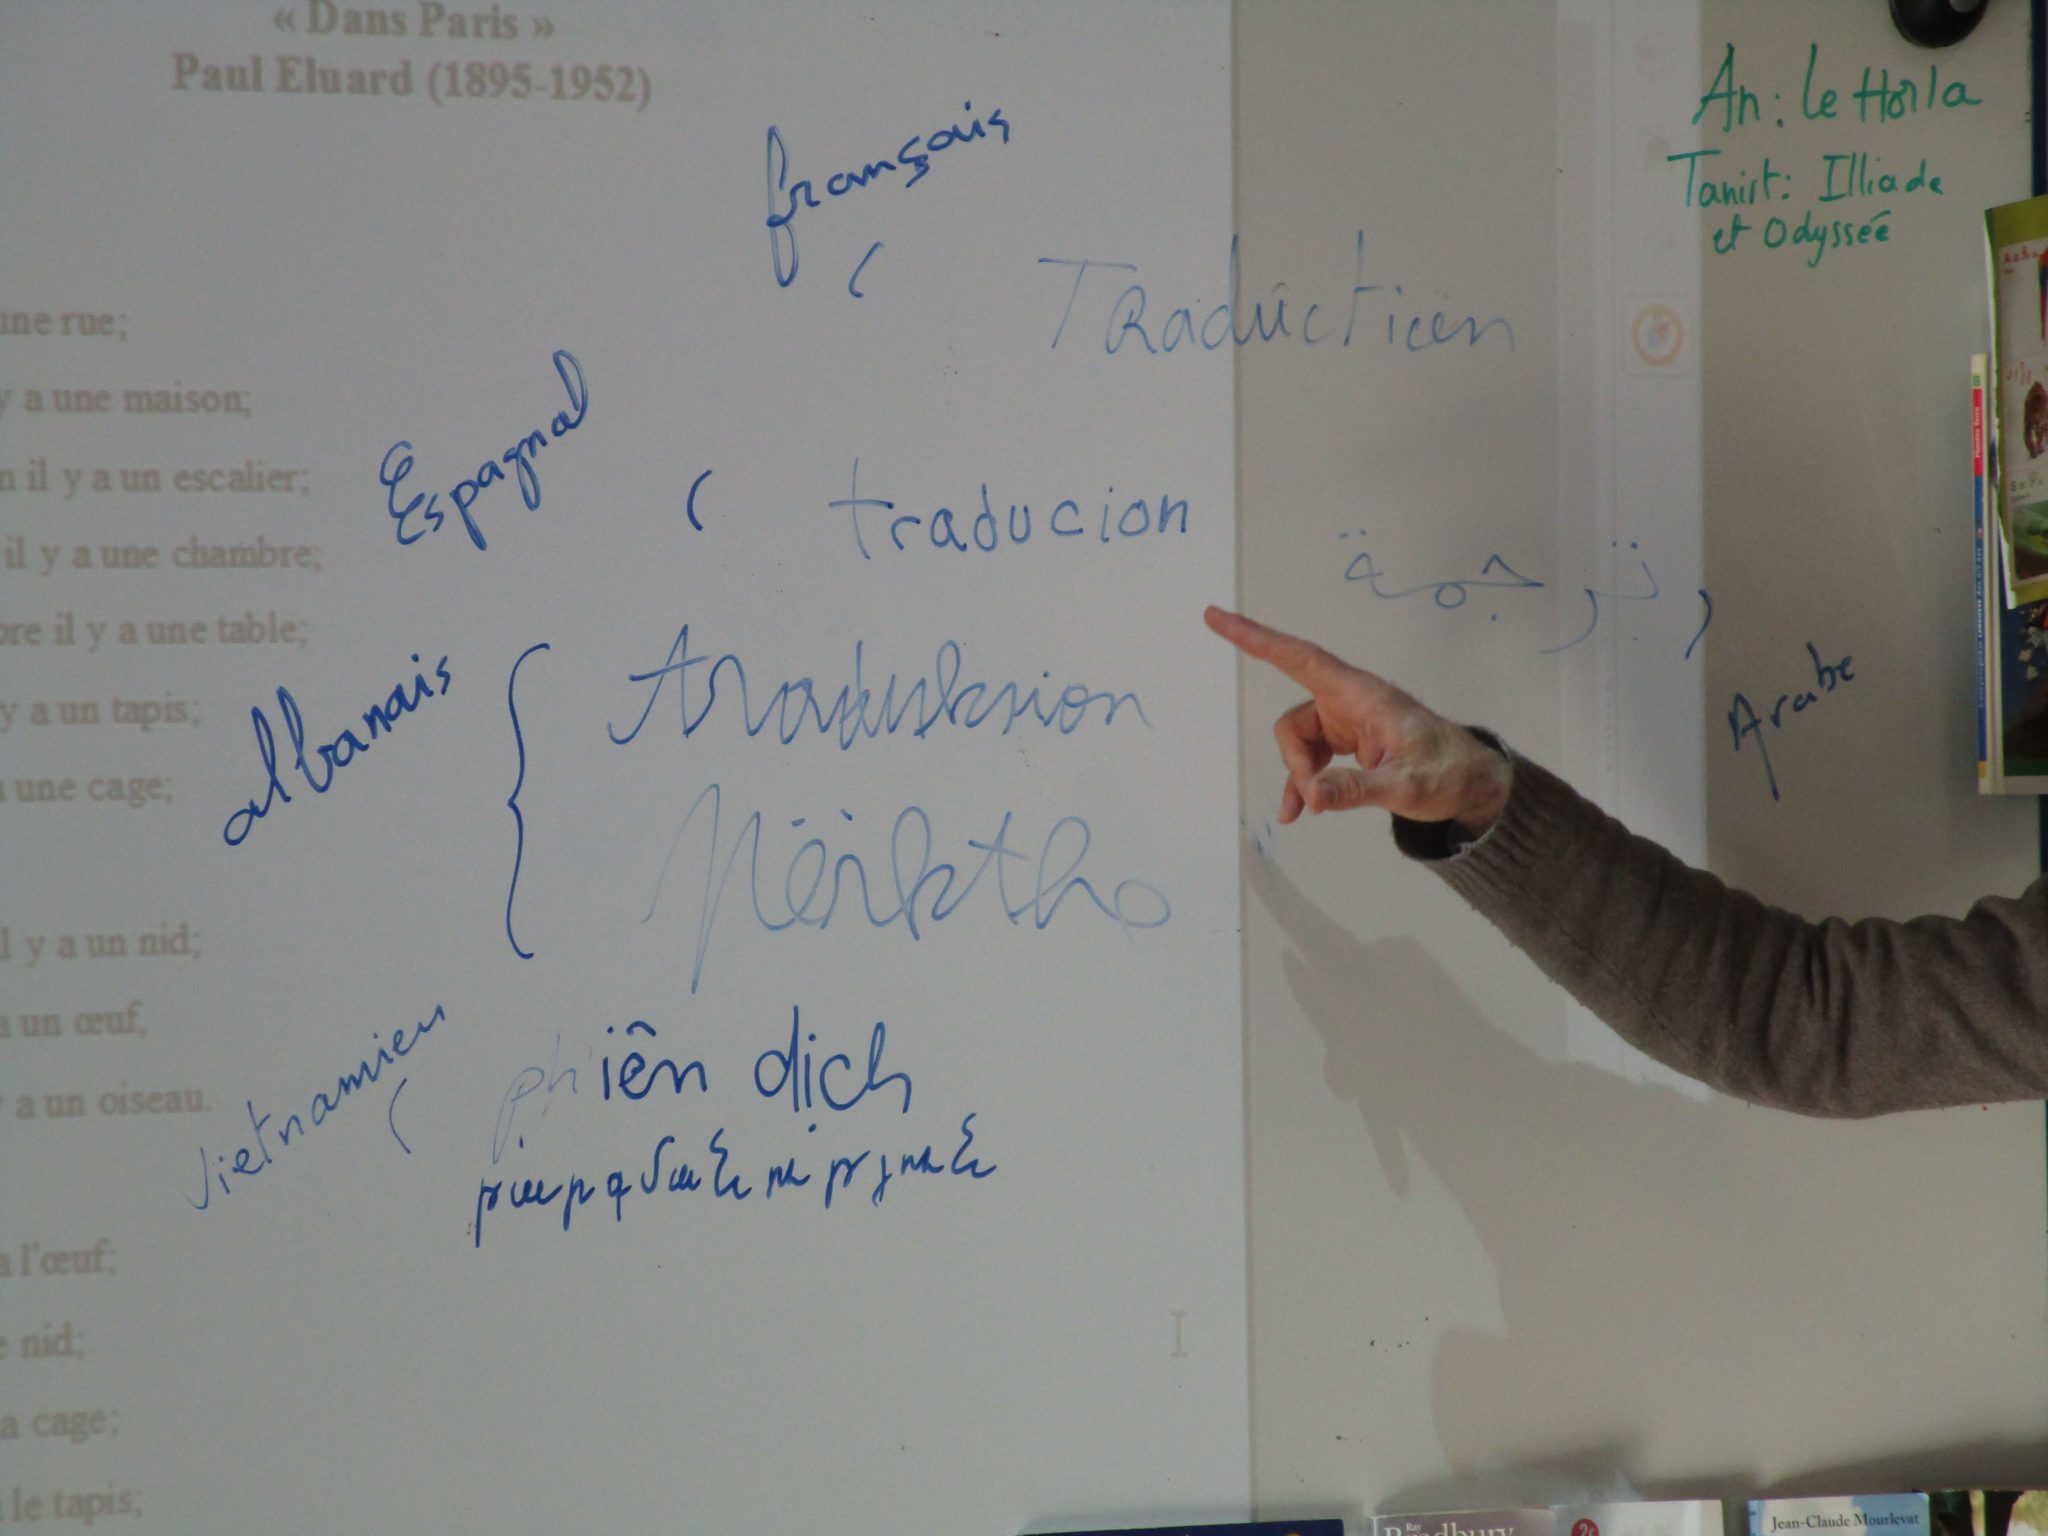 « Dans Paris »
Paul Eluard (1895-1952)
An: Le Horla
Tanist: Illiade
et Odyssée
français
Traduction
une rue;
y a une maison;
n il y a un escalier;
il y a une chambre;
bre il y a une table;
y a un tapis;
a une cage;
l y a un nid;
a un œuf,
y a un oiseau.
a l'œuf;
e nid;
a cage;
le tapis;
Espagnol
traducion
ترجمة
Arabe
albanais
traduksion
Përktho
vietnamien
phiên dich
Jean-Claude Mourlevat
Ray
Bradbury